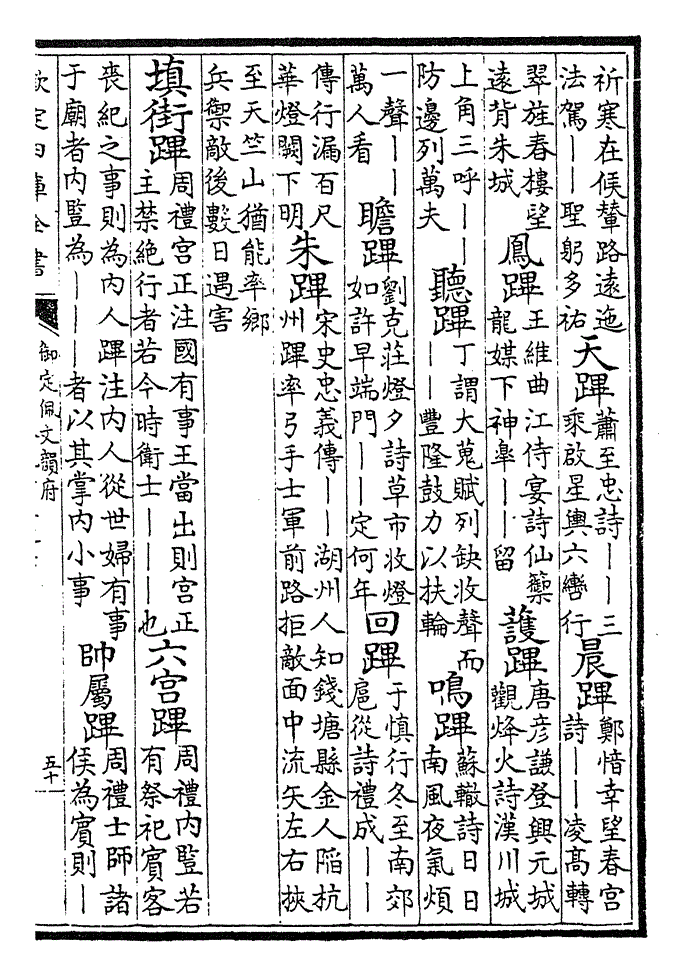 祈寒在候輦路遠迤
法駕——聖躬多祐
天蹕
蕭至忠詩——三
乘啟星輿六轡行
晨蹕
鄭愔幸望春宮
詩——凌高轉
翠旌春樓望
遠背朱城
鳳蹕
王維曲江侍宴詩仙籞
龍媒下神臯——留
護蹕
唐彦謙登興元城
觀烽火詩漢川城
上角三呼——
防邊列萬夫
聽蹕
丁謂大蒐賦列缺收聲而
——豐隆鼓力以扶輪
鳴蹕
蘇轍詩日日
南風夜氣煩
一聲——
萬人看
瞻蹕
劉克莊燈夕詩草市收燈
如許早端門——定何年
回蹕
于慎行冬至南郊
扈從詩禮成——
傳行漏百尺
華燈闕下明
朱蹕
宋史忠義傳——湖州人知錢塘縣金人陷杭
州蹕率弓手士軍前路拒敵面中流矢左右挾
至天竺山猶能率鄉
兵禦敵後數日遇害
填街蹕
周禮宮正注國有事王當出則宮正
主禁絶行者若今時衛士———也
六宮蹕
周禮内豎若
有祭祀賓客
喪紀之事則為内人蹕注内人從世婦有事
于廟者内豎為———者以其掌内小事
帥屬蹕
周禮士師諸
侯為賓則—
欽定四庫全書
御定佩文韻府
五十